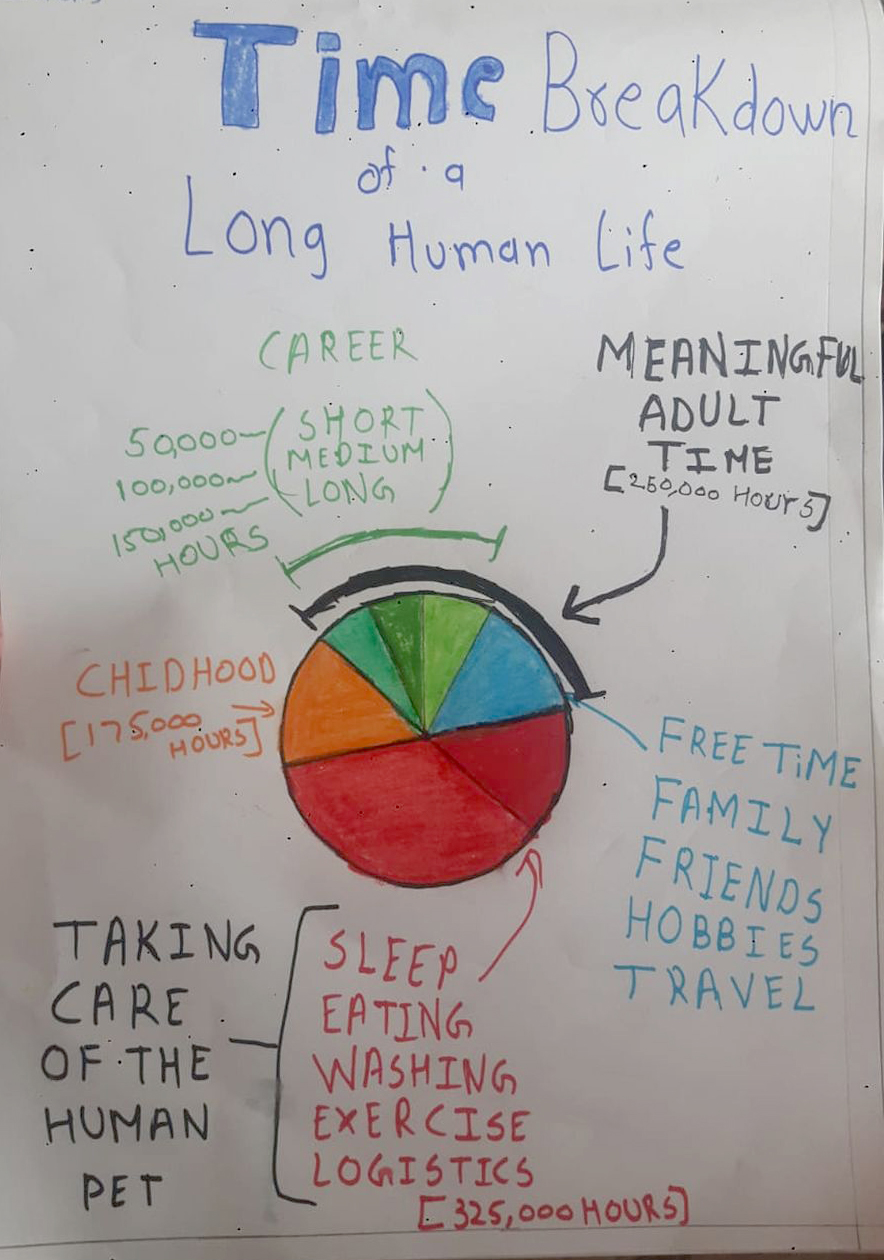 Time Breakdown
of a
Long Human Life
CAREER
50,000 (SHORT
100,000 MEDIUM
150,000 LONG)
HOURS
MEANINGFUL
ADULT
TIME
[250,000 HOURS]
CHIDHOOD
[175,000
HOURS]
FREE TiME
FAMILY
FRIENDS
HOBBIES
TRAVEL
TAKING
CARE
OF THE
HUMAN
PET
SLEEP
EATING
WASHING
EXERCISE
LOGISTICS
[325,000 HOURS]